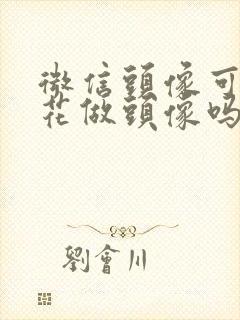 微信頭像可
花做頭像吗
劉會川